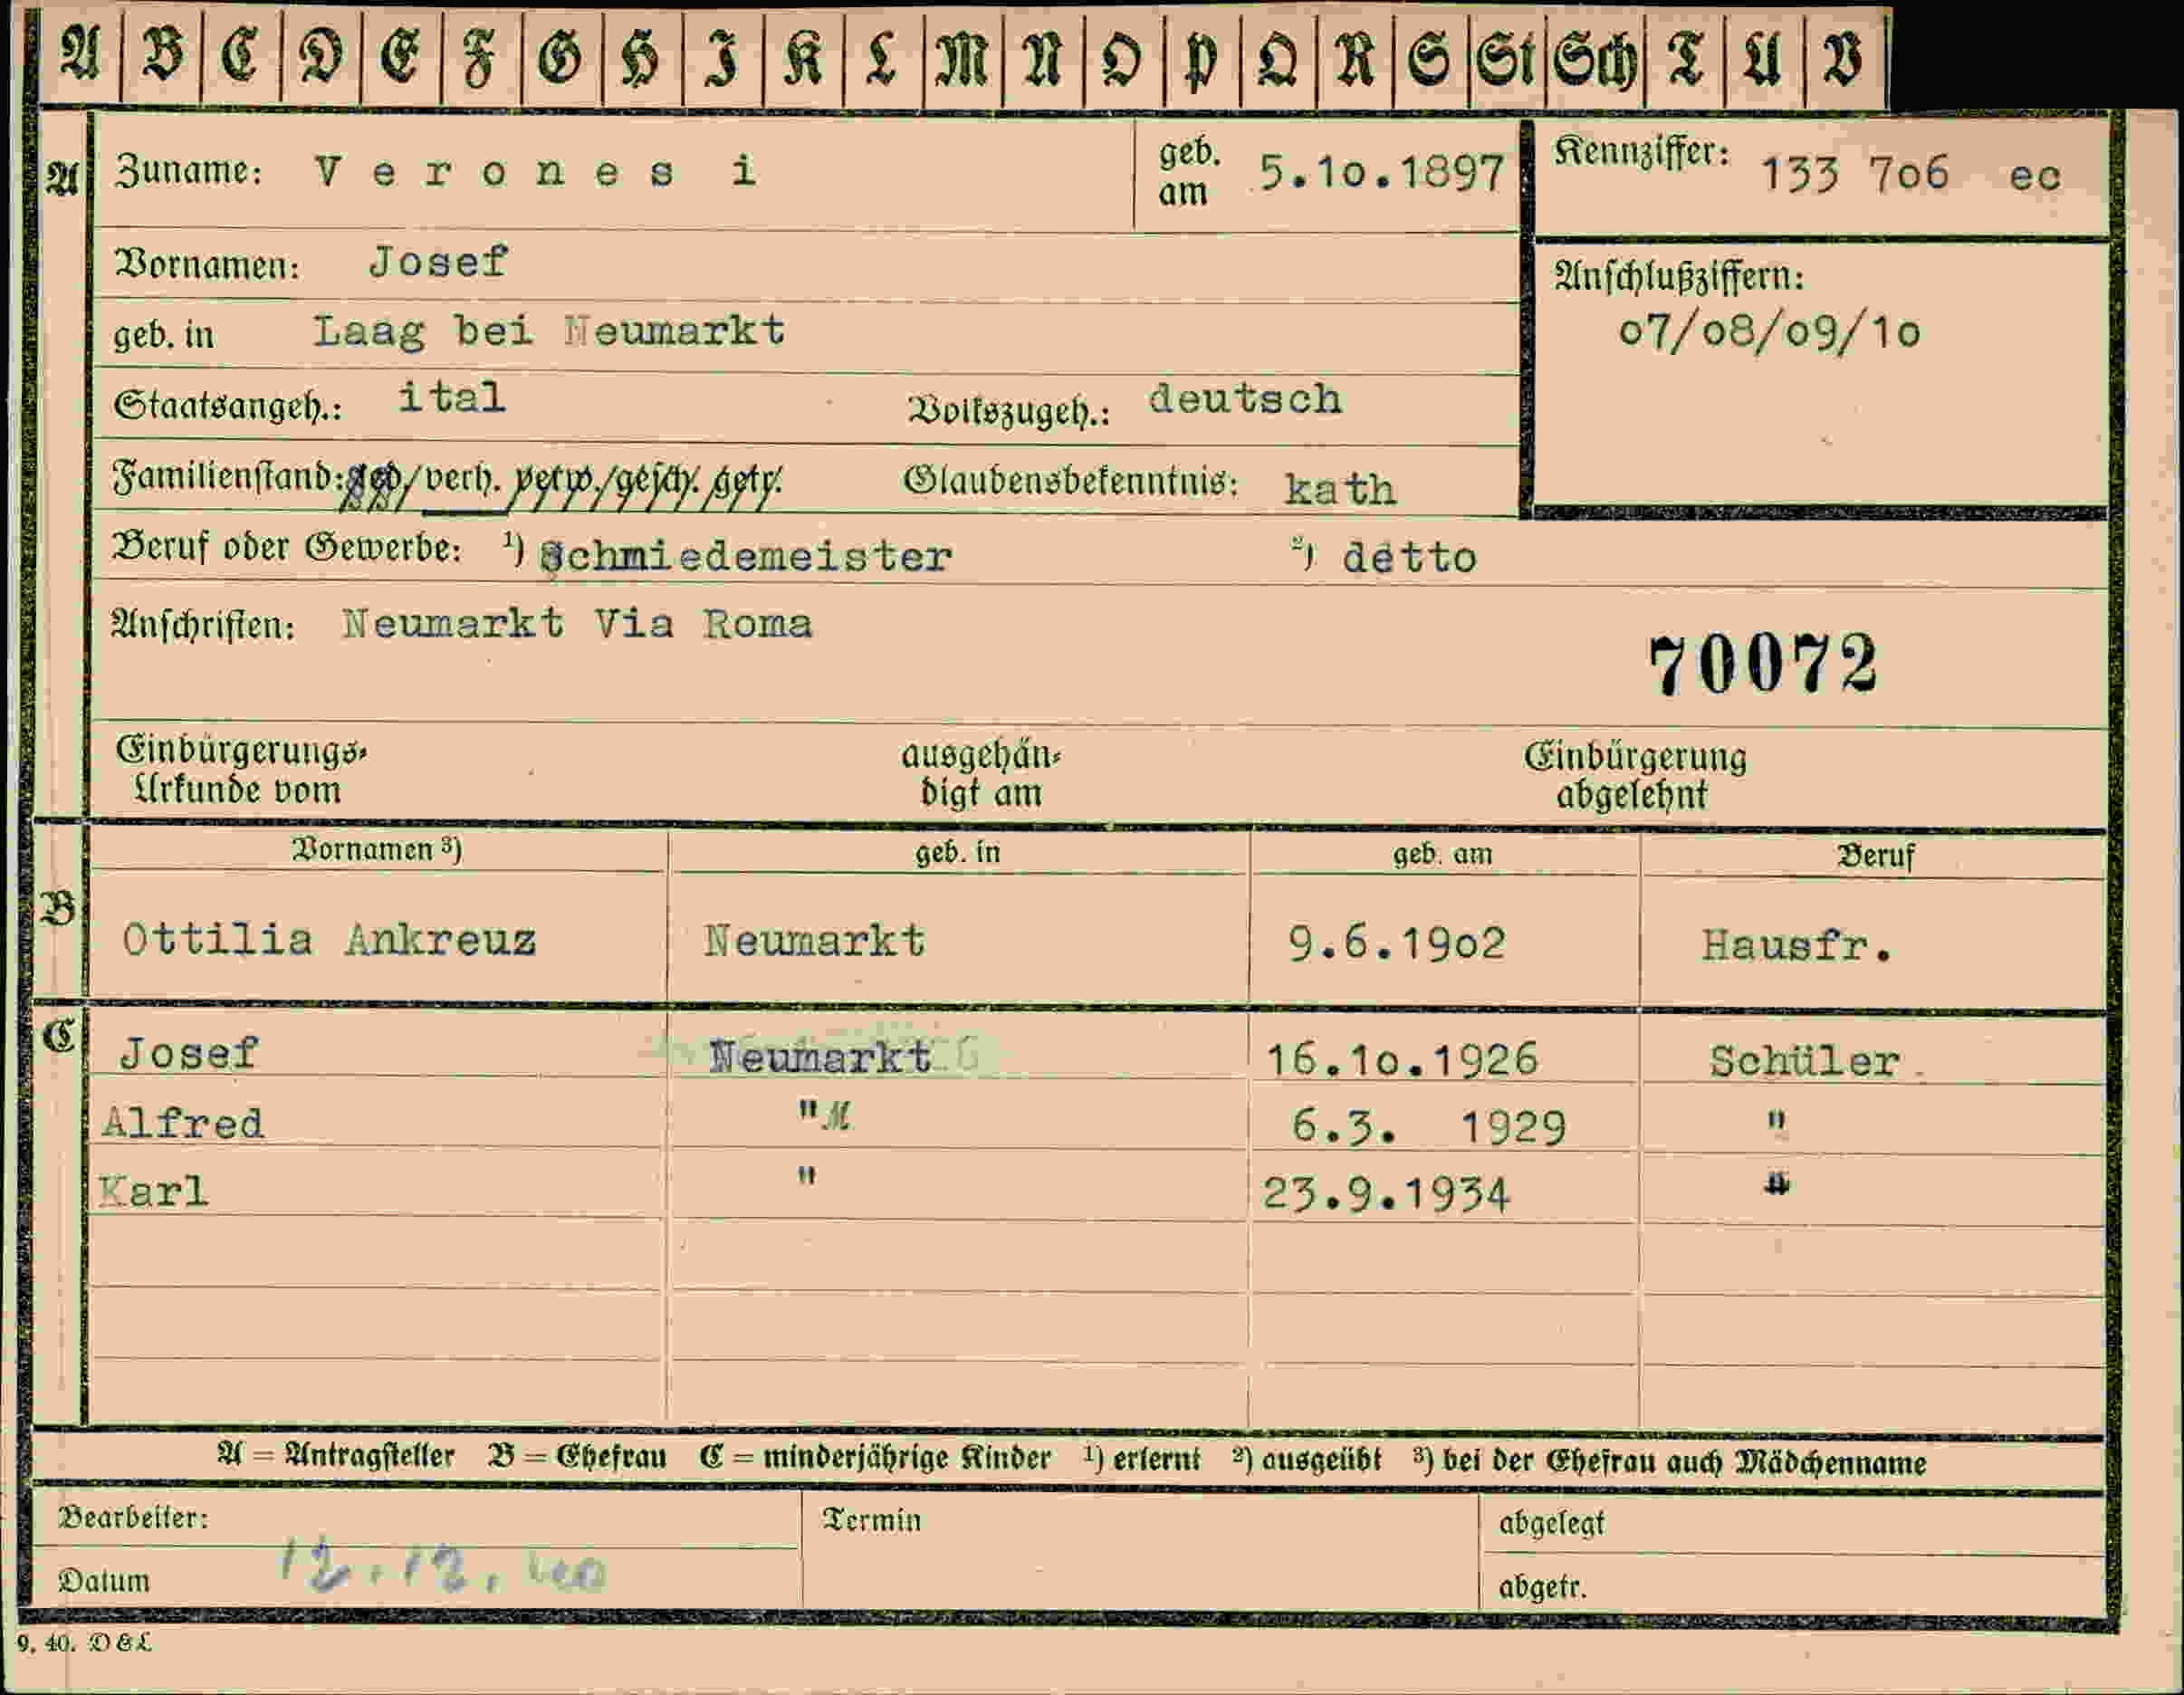 A B C D E F G H I K L M N O P Q R S St Sch T U V
A Zuname: V e r o n e s i geb. am 5.1o.1897 Kennziffer: 133 7o6 ec
Vornamen: Josef
Anschlußziffern:
o7/o8/o9/1o
geb. in Laag bei Neumarkt
Staatsangeh.: ital Volkszugeh.: deutsch
Familienstand: led/verh. verw./gesch. getr. Glaubensbekenntnis: kath
Beruf oder Gewerbe: ¹) Schmiedemeister ²) detto
Anschriften: Neumarkt Via Roma
70072
Einbürgerungs- ausgehän- Einbürgerung
Urkunde vom digt am abgelehnt
Vornamen ³) geb. in geb. am Beruf
B Ottilia Ankreuz Neumarkt 9.6.19o2 Hausfr.
C Josef Neumarkt 16.1o.1926 Schüler
Alfred " 6.3. 1929 "
Karl " 23.9.1934 "
A = Antragsteller B = Ehefrau C = minderjährige Kinder ¹) erlernt ²) ausgeübt ³) bei der Ehefrau auch Mädchenname
Bearbeiter: Termin abgelegt
Datum 12.12.40 abgetr.
9. 40. D & L